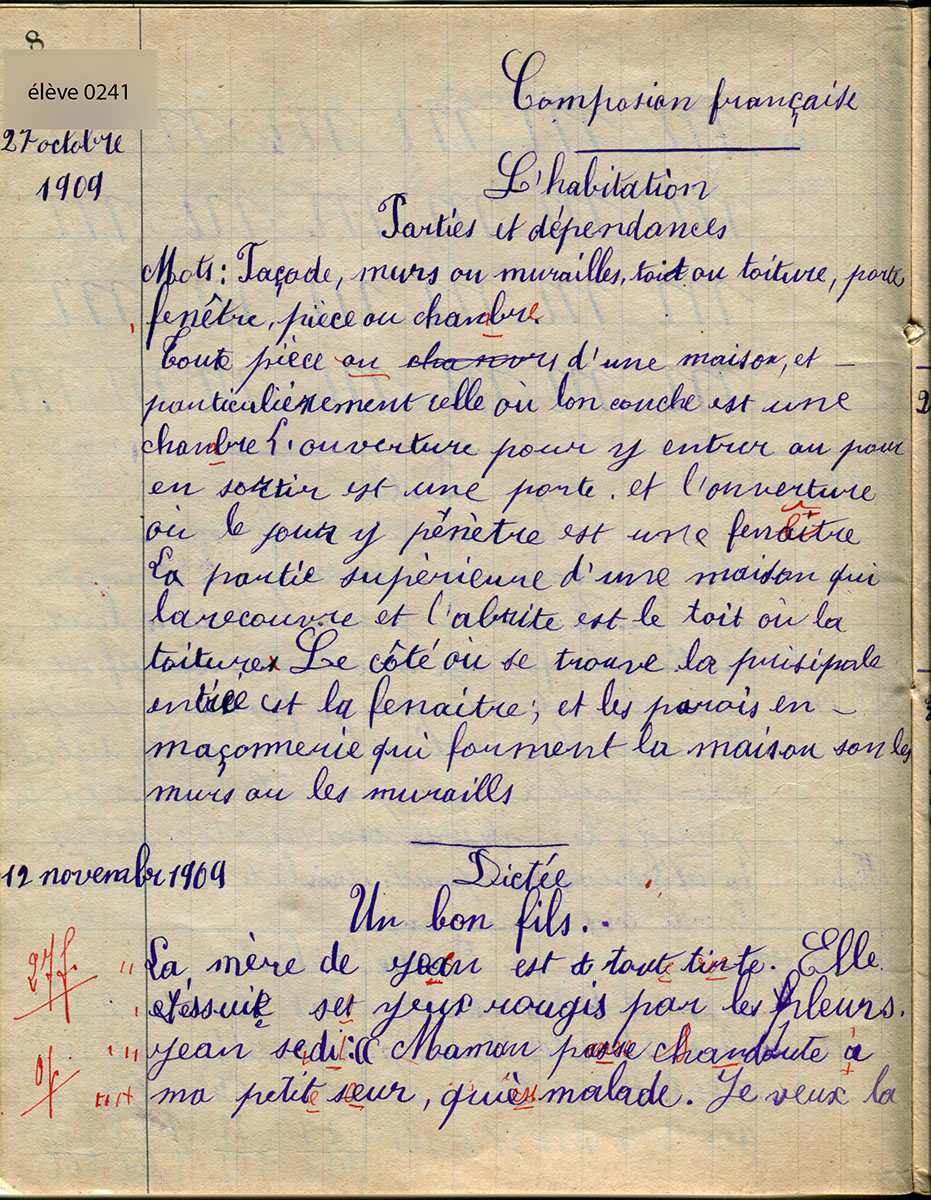 8
élève 0241
27 octobre
1909
Composion française
L'habitation
Parties et dépendances
Mots: Façade, murs ou murailles, toit ou toiture, porte
fenêtre, pièce ou chanbre.
Toute pièce ou d'une maison, et
particulièrement celle où lon couche est une
chanbre L'ouverture pour y entrer ou pour
en sortir est une porte. et l'ouverture
où le jour y pénètre est une fenaitre
La partie supèrieure d'une maison qui
la recouvre et l'abrite est le toit où la
toiture. Le côté où se trouve la prisipale
entrée est la fenaitre; et les parois en
maçonnerie qui forment la maison son les
murs ou les muraills
12 novembr 1909
Dictée
Un bon fils..
27 f. La mère de jean est toute tirte. Elle
essuie ses yeux rougis par les pleurs.
jean se di: (( Maman pense
0/ ma petite seur, qui malade. Je veux la